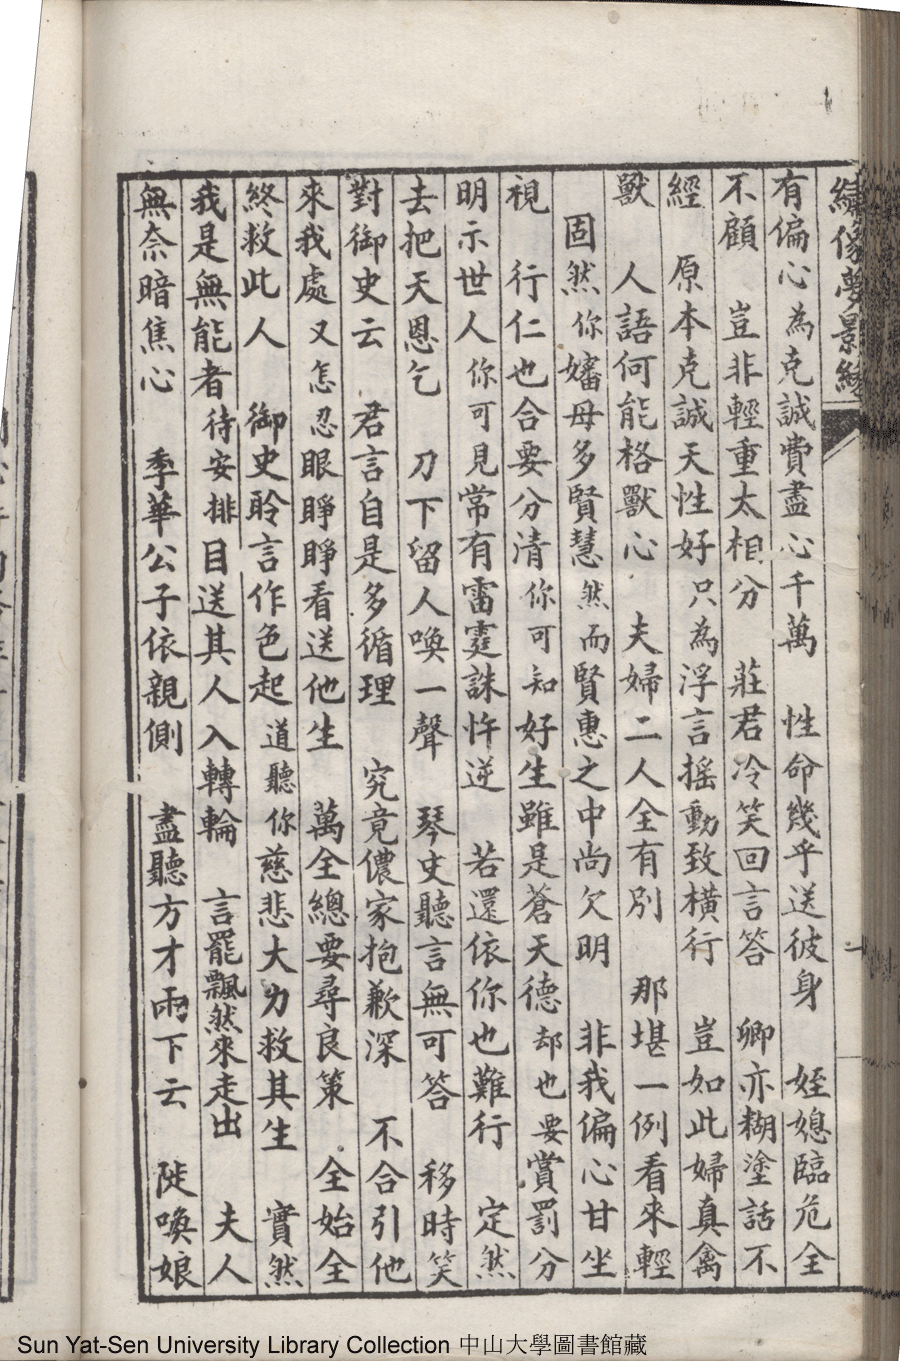 繡像夢影緣
有偏心為克誠費盡心千萬 性命幾乎送彼身 姪媳臨危全
不顧 豈非輕重太相分 莊君冷笑回言答 卿亦糊塗話不
經 原本克誠天性好只為浮言搖動致橫行 豈如此婦真禽
獸 人語何能格獸心 夫婦二人全有別 那堪一例看來輕
固然你嬸母多賢慧然而賢惠之中尚欠明 非我偏心甘坐
視 行仁也合要分清你可知好生雖是蒼天德却也要賞罰分
明示世人你可見常有雷霆誅忤逆 若還依你也難行 定然
去把天恩乞 刀下留人喚一聲 琴史聽言無可答 移時笑
對御史云 君言自是多循理 究竟儂家抱歉深 不合引他
來我處又怎忍眼睜睜看送他生 萬全總要尋良策 全始全
終救此人 御史聆言作色起道聽你慈悲大力救其生 實然
我是無能者待安排目送其人入轉輪 言罷飄然來走出 夫人
無奈暗焦心 季華公子依親側 盡聽方才兩下云 陡喚娘
Sun Yat-Sen University Library Collection 中山大學圖書館藏